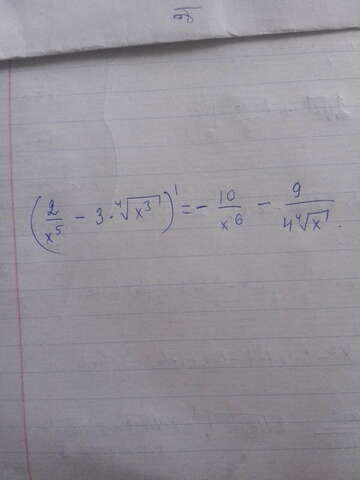 (2/x⁵ - 3·⁴√x³)' = -10/x⁶ - 9/4⁴√x.